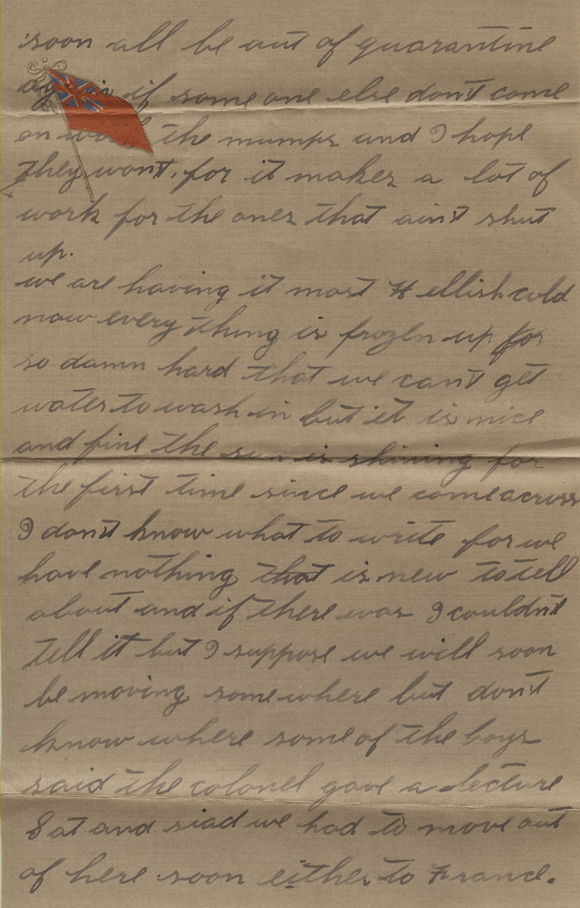 soon all be out of quarantine
if some one else don't come
on with the mumps and I hope
they won't, for it makes a lot of
work for the ones that ain't shut
up.
we are having it most Hellish cold
now every thing is frozen up for
so damn hard that we can't get
water to wash in but it is nice
and fine the sun is shining for
the first time since we come across
I don't know what to write for we
have nothing that is new to tell
about and if there was I couldn't
tell it but I suppose we will soon
be moving somewhere but don't
know where some of the boys
said the colonel gave a lecture
Sat and siad we had to move out
of here soon either to France.